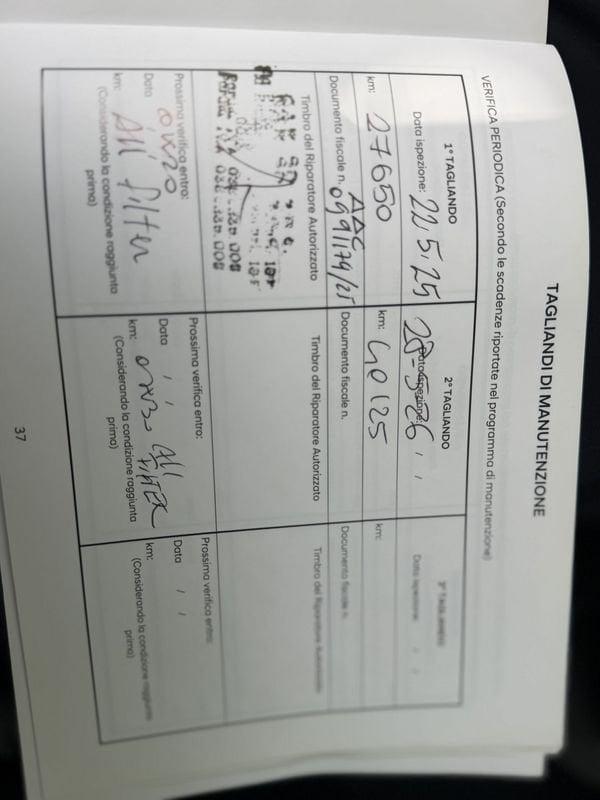 TAGLIANDI DI MANUTENZIONE
VERIFICA PERIODICA (Secondo le scadenze riportate nel programma di manutenzione)
1° TAGLIANDO
Data ispezione: 22.5.25
km: 27650
Documento fiscale n. 0991179/25
Timbro del Riparatore Autorizzato
Prossima verifica entro:
Data
km: All filter
(Considerando la condizione raggiunta prima)
2° TAGLIANDO
Data ispezione:
km:
Documento fiscale n.
Timbro del Riparatore Autorizzato
Prossima verifica entro:
Data / /
km: All FilTER
(Considerando la condizione raggiunta prima)
3° TAGLIANDO
Data ispezione: / /
km:
Documento fiscale n.
Timbro del Riparatore Autorizzato
Prossima verifica entro:
Data / /
km:
(Considerando la condizione raggiunta prima)
37